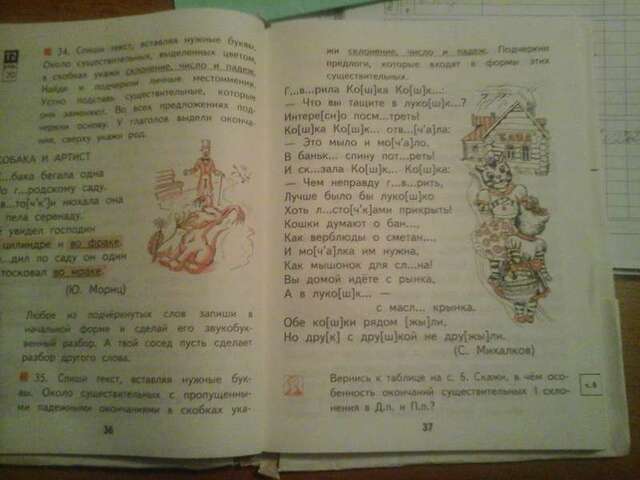 34. Спиши текст, вставляя нужные буквы.
Около существительных, выделенных цветом,
в скобках укажи склонение, число и падеж.
Найди и подчеркни личные местоимения.
Устно подставь существительные, которые
они заменяют. Во всех предложениях под-
черкни основу. У глаголов выдели оконча-
ния, сверху укажи род.
СОБАКА И АРТИСТ
...бака бегала одна
По г...родскому саду.
...в...то[ч'к']и нюхала она
пела серенаду.
увидел господин
цилиндре и во фраке.
...дил по саду он один
тосковал во мраке.
(Ю. Мориц)
Любое из подчёркнутых слов запиши в
начальной форме и сделай его звукобук-
венный разбор. А твой сосед пусть сделает
разбор другого слова.
35. Спиши текст, вставляя нужные бук-
вы. Около существительных с пропущенны-
ми падежными окончаниями в скобках ука-
36
жи склонение, число и падеж. Подчеркни
предлоги, которые входят в формы этих
существительных.
Г...в...рила Ко[ш]ка Ко[ш]к...:
— Что вы тащите в луко[ш]к...?
Интере[сн]о посм...треть!
Ко[ш]ка Ко[ш]к... отв...[ч'а]ла:
— Это мыло и мо[ч'а]ло,
В баньк... спину пот...реть!
И ск...зала Ко[ш]к... Ко[ш]ка:
— Чем неправду г...в...рить,
Лучше было бы луко[ш]ко
Хоть л...сто[ч'к']ами прикрыть!
Кошки думают о бан...,
Как верблюды о сметан...,
И мо[ч'а]лка им нужна,
Как мышонок для сл...на!
Вы домой идёте с рынка,
А в луко[ш]к... —
с масл... крынка.
Обе ко[ш]ки рядом [жы]ли,
Но дру[к] с дру[ш]кой не дру[жы]ли.
(С. Михалков)
Вернись к таблице на с. 5. Скажи, в чём осо-
бенность окончаний существительных 1 скло-
нения в Д.п. и П.п.?
37